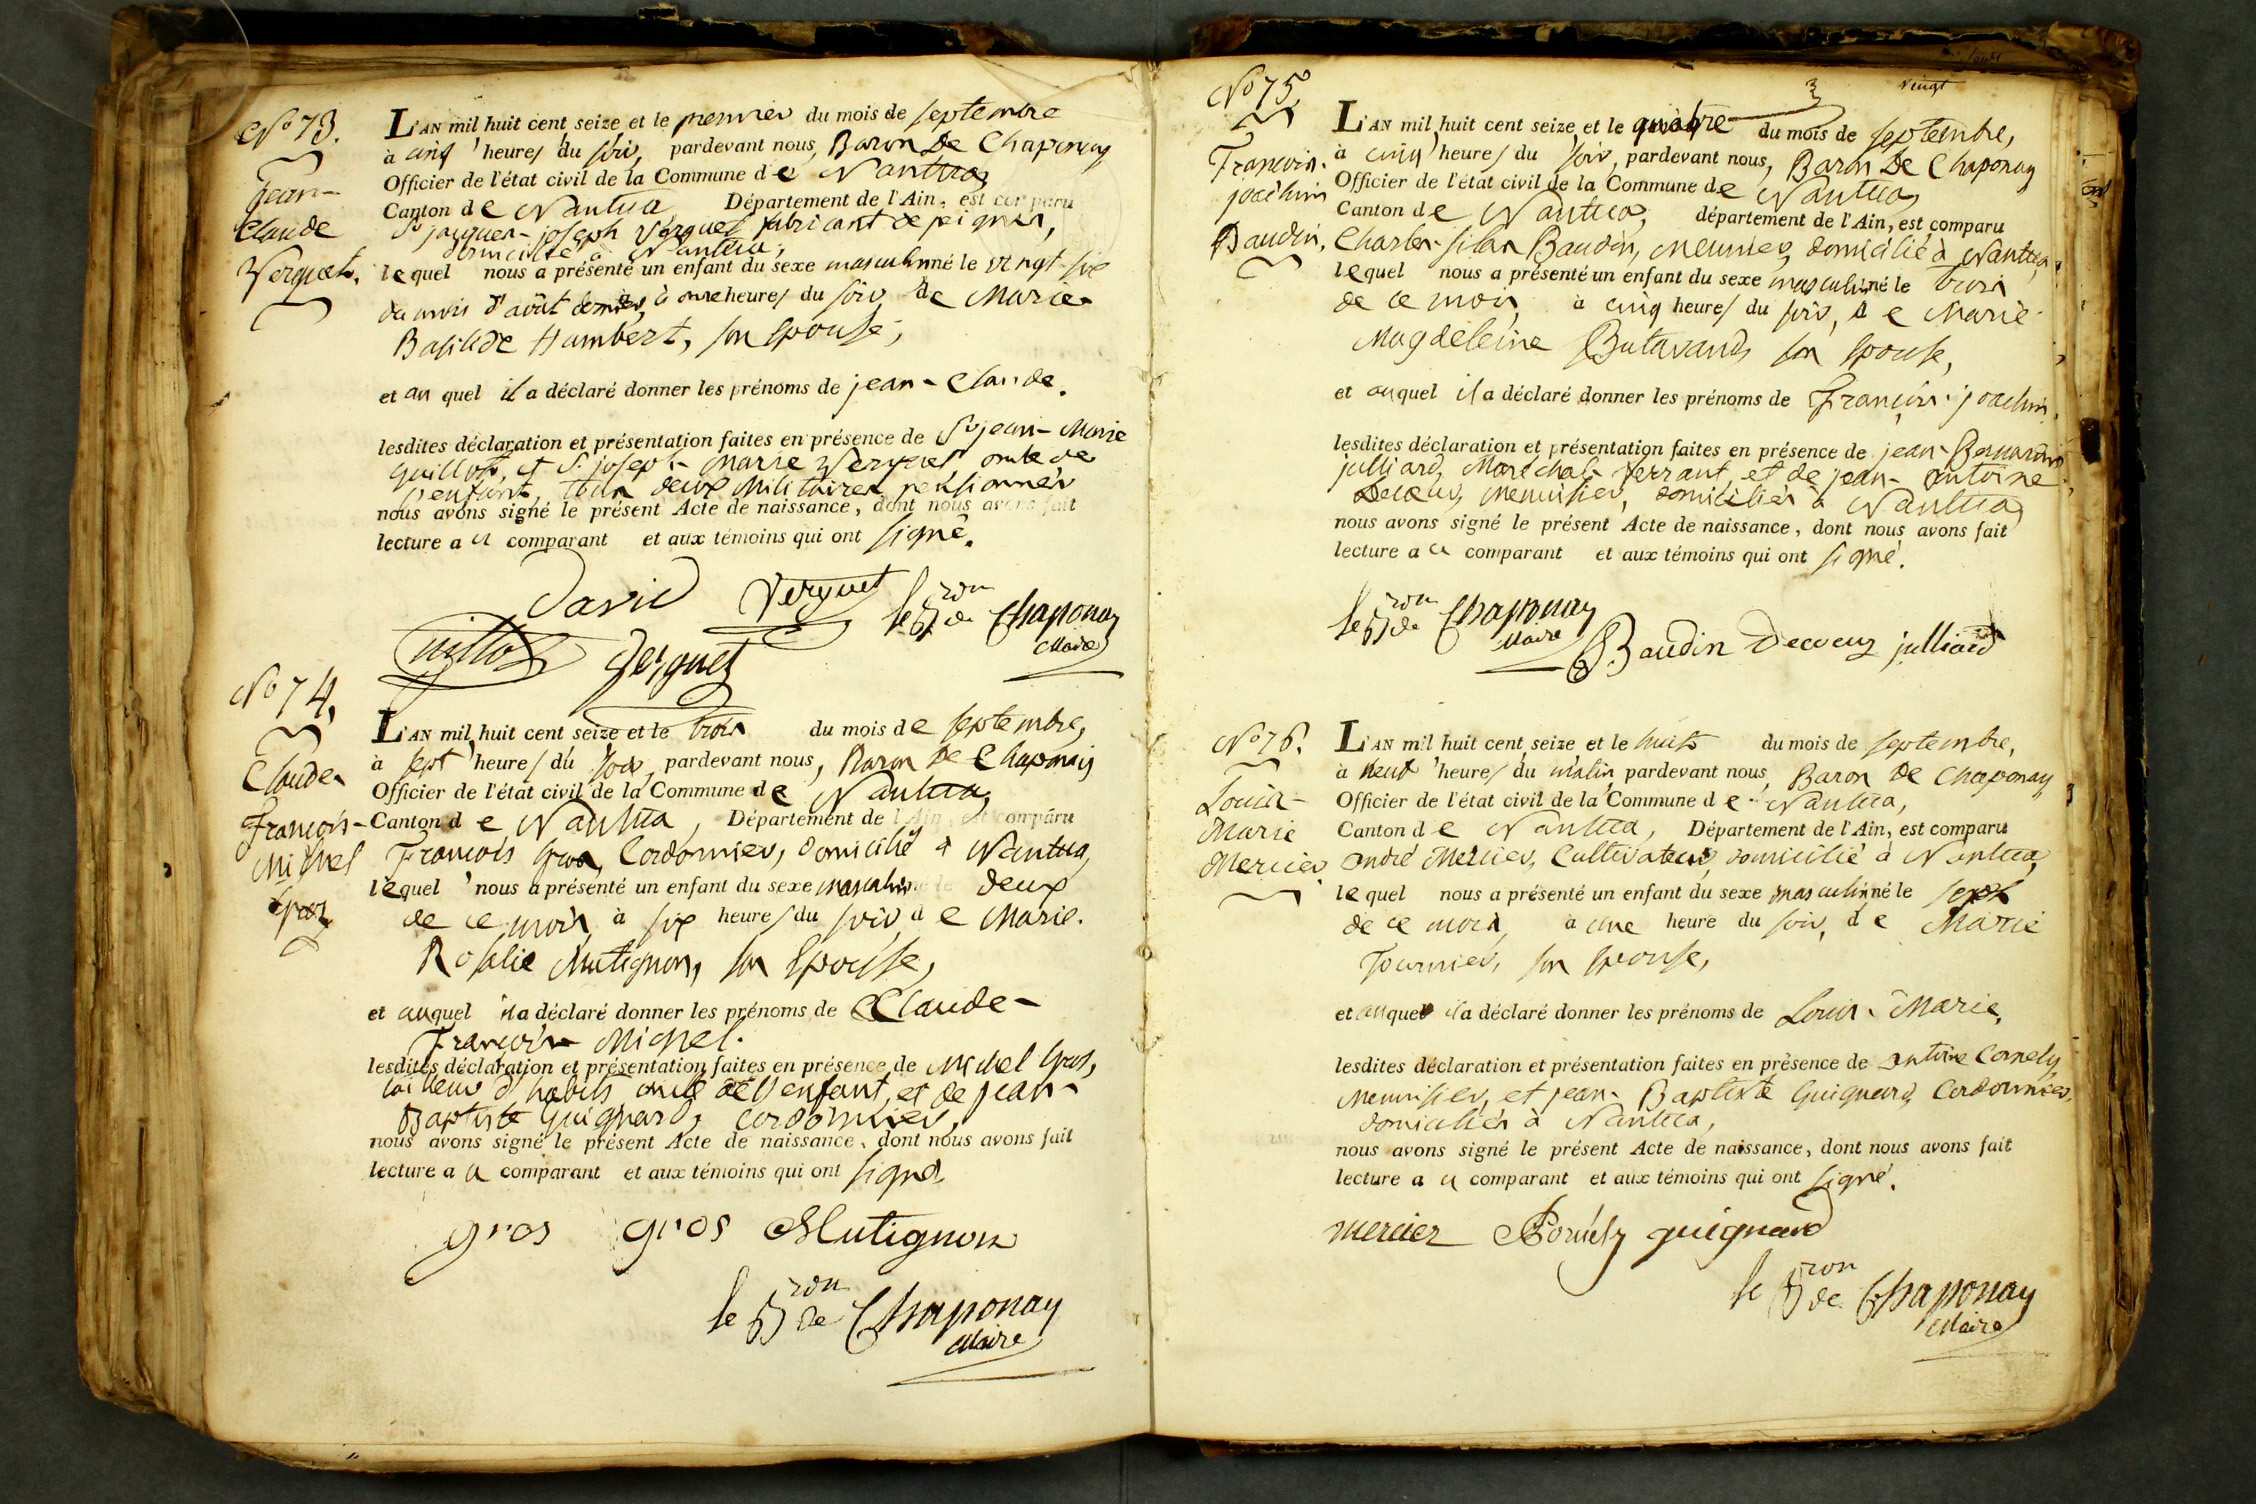 No 73.
Jean-
Claude
Verguet.
L'AN mil huit cent seize et le premier du mois de septembre
à cinq heures du soir, pardevant nous, Baron De Chaponay
Officier de l'état civil de la Commune de Nantua
Canton de Nantua Département de l'Ain, est comparu
Sr jacques-joseph Verguet fabricant de peignes,
domicilié à Nantua,
lequel nous a présenté un enfant du sexe masculin né le vingt-six
du mois d'août dernier, à onze heures du soir, de Marie-
Basilide Humbert, son épouse,
et auquel il a déclaré donner les prénoms de jean-Claude.
lesdites déclaration et présentation faites en présence de Sr jean-Marie
Guillot, et Sr joseph-Marie Verguet oncle de
l'enfant, tous deux Militaires pensionnés
nous avons signé le présent Acte de naissance, dont nous avons fait
lecture a ce comparant et aux témoins qui ont signé.
David Verguet le Bron de Chaponay
Maire
Guillot Verguet
No 74.
Claude-
François-
Michel
Gros
L'AN mil huit cent seize et le trois du mois de septembre,
à sept heures du soir, pardevant nous, Baron De Chaponay
Officier de l'état civil de la Commune de Nantua,
Canton de Nantua, Département de l'Ain, est comparu
François Gros, Cordonnier, domicilié à Nantua,
lequel nous a présenté un enfant du sexe masculin né le deux
de ce mois à six heures du soir, de Marie-
Rosalie Mutignon, son épouse,
et auquel il a déclaré donner les prénoms de Claude-
François-Michel.
lesdites déclaration et présentation faites en présence de Michel Gros,
tailleur d'habits oncle de l'enfant, et de jean-
Baptiste Guignard, cordonnier,
nous avons signé le présent Acte de naissance, dont nous avons fait
lecture a ce comparant et aux témoins qui ont signé.
gros gros Mutignon
le Bron de Chaponay
Maire
vingt
No 75.
François-
joachim
Baudin.
L'AN mil huit cent seize et le quatre du mois de septembre,
à cinq heures du soir, pardevant nous, Baron De Chaponay
Officier de l'état civil de la Commune de Nantua,
Canton de Nantua, département de l'Ain, est comparu
Charles-Silan Baudin, Meunier, domicilié à Nantua,
lequel nous a présenté un enfant du sexe masculin né le trois
de ce mois, à cinq heures du soir, de Marie-
Magdeleine Butavand, son épouse,
et auquel il a déclaré donner les prénoms de François-joachim,
lesdites déclaration et présentation faites en présence de jean-Bernardin
julliard, Maréchal-ferrant, et de jean-Antoine
Decoeur, Menuisier, domiciliés à Nantua
nous avons signé le présent Acte de naissance, dont nous avons fait
lecture a ce comparant et aux témoins qui ont signé.
le Bron de Chaponay
Maire
Baudin Decoeur julliard
No 76.
Louis-
Marie
Mercier
L'AN mil huit cent seize et le huit du mois de septembre,
à neuf heures du matin, pardevant nous, Baron De Chaponay
Officier de l'état civil de la Commune de Nantua,
Canton de Nantua, Département de l'Ain, est comparu
André Mercier, Cultivateur, domicilié à Nantua,
lequel nous a présenté un enfant du sexe masculin né le sept
de ce mois, à une heure du soir, de Marie
Tournier, son épouse,
et auquel il a déclaré donner les prénoms de Louis-Marie,
lesdites déclaration et présentation faites en présence de Antoine Cornely
Menuisier, et jean-Baptiste Guignard, Cordonnier,
domiciliés à Nantua,
nous avons signé le présent Acte de naissance, dont nous avons fait
lecture a ce comparant et aux témoins qui ont signé.
mercier Cornély guignard
le Bron de Chaponay
Maire